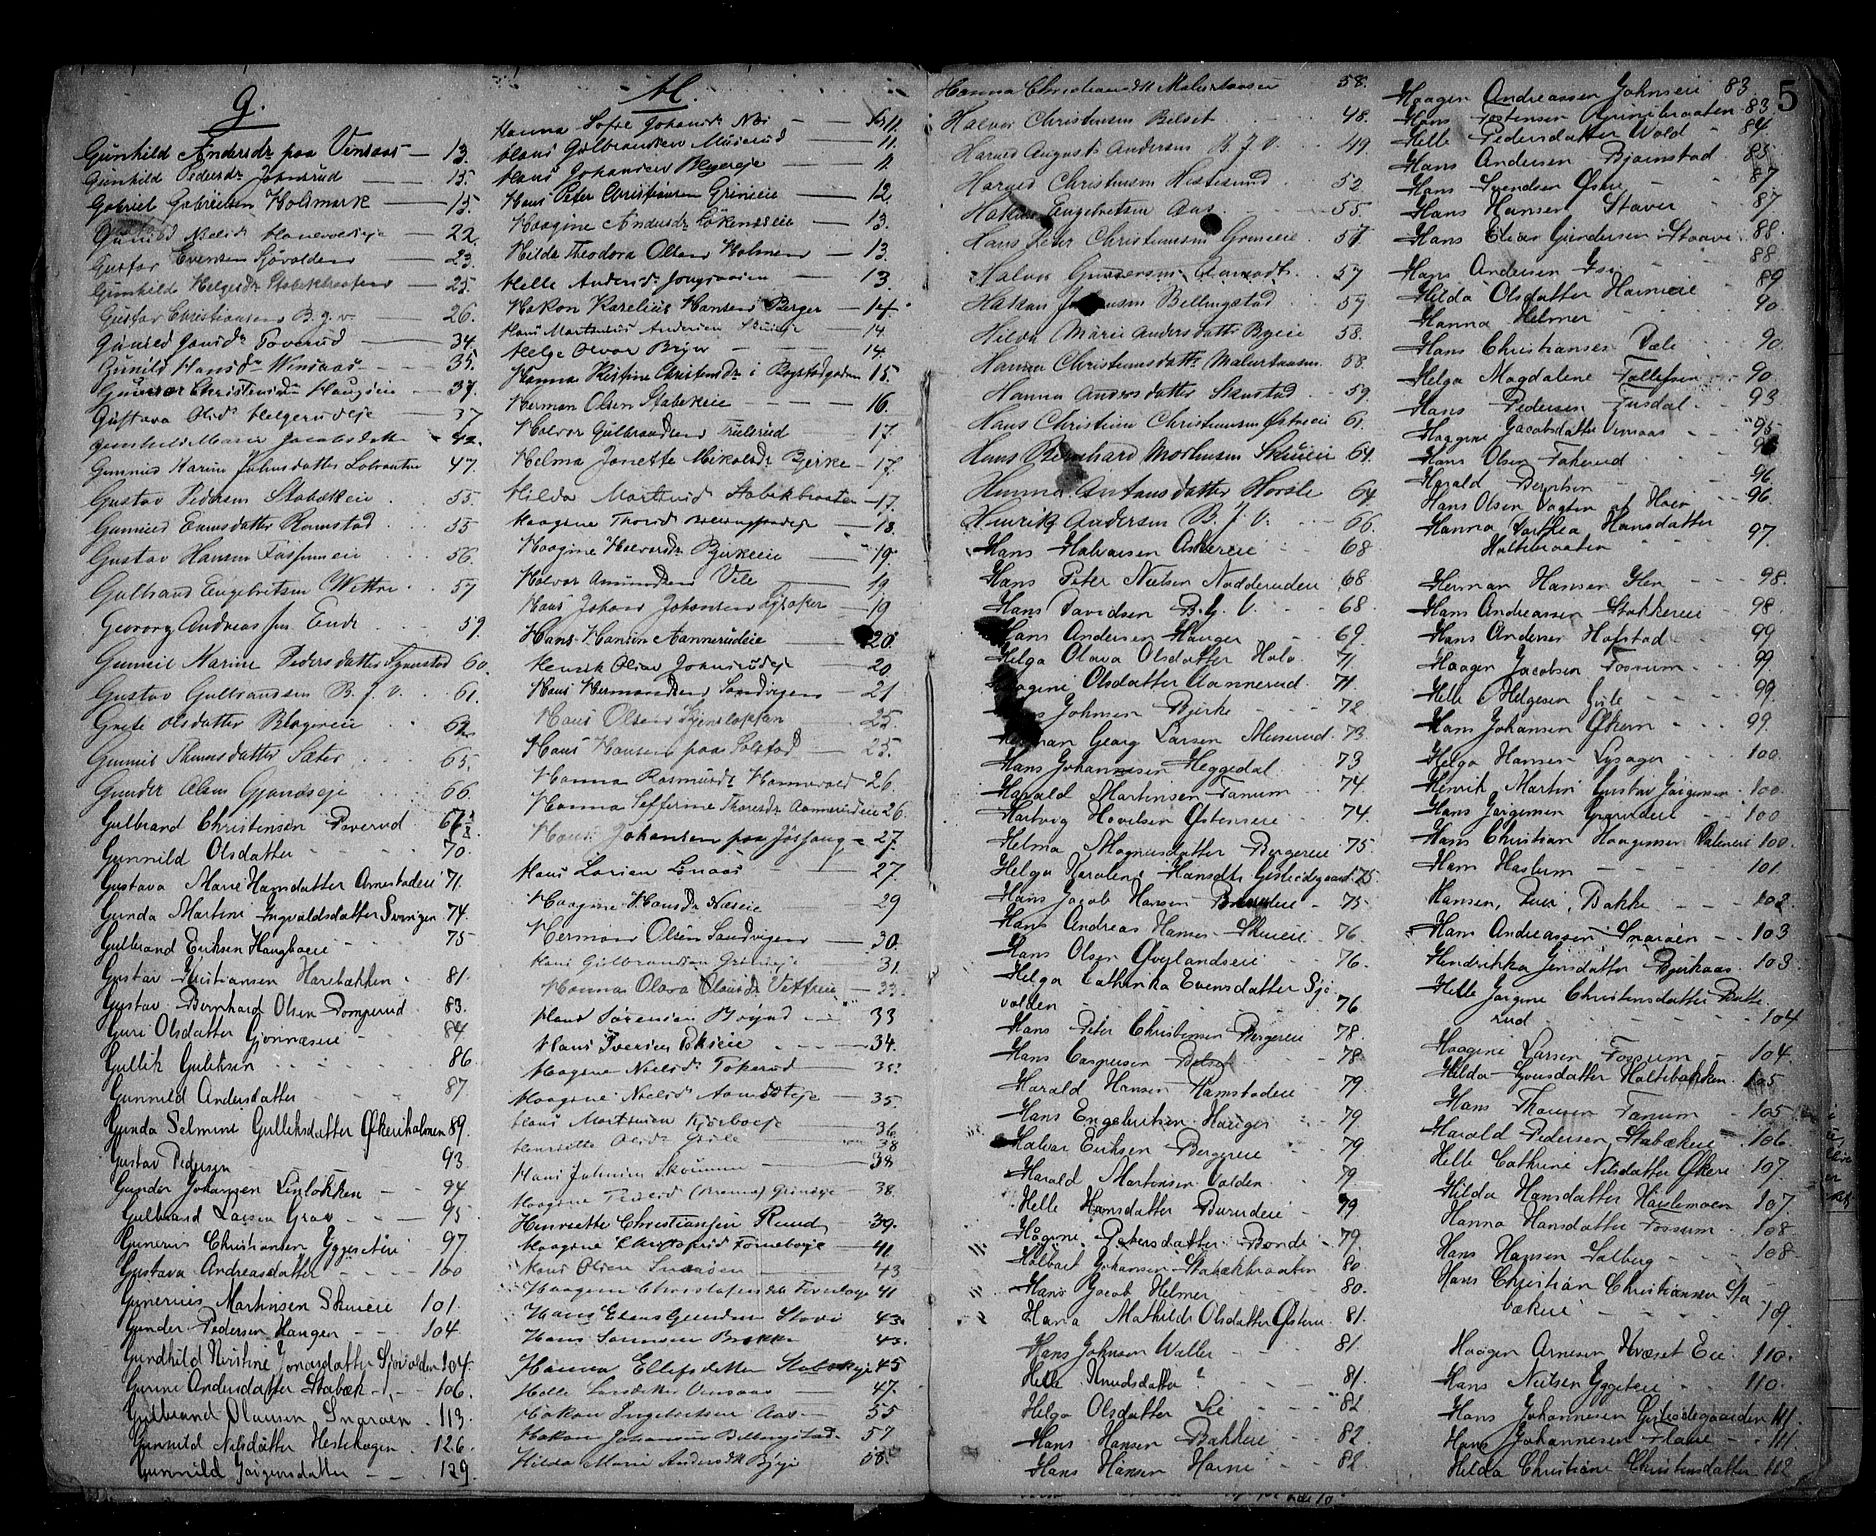 G.
Gunhild Andersdr paa Vensaas — 13.
Gunhild Pedersdr Johnsrud — 15.
Gabriel Gabrielsen Holdmark — 15.
Gunild Nielsdr Hanevoldeje — 22.
Gustav Evensen Sjøvolden — 23.
Gunhild Helgesdr Stabekbraaten — 25.
Gustav Christiansen B.g.v. — 26.
Gunild Jonsdr Toverud — 34.
Gunild Hansdr Winsaas — 35.
Gunvor Christensdr Haugseie — 37.
Gustava Olsdr Helgerudeje — 37
Gunhild Marie Jacobsdatter 42.
Gunnild Karine Johnsdatter 47.
Gustav Pedersen Stabækeie 55.
Gunnild Evensdatter Ramstad 55
Gustav Hansen Fossumeie 56.
Gulbrand Engebretsen Wettre 57
Georg Andreassen Ende 59.
Gunnil Marine Pedersdatter 60.
Gustav Gulbrandsen B.J.V. 61.
Grete Olsdatter Blagereie 62.
Gunnil Thomesdatter Sæter 65.
Gunder Olsen Gjøndseje 66.
Gulbrand Christensen Poverud 67
Gunnild Olsdatter 70
Gustava Marie Hansdatter Arnestadeie 71.
Gunda Martine Ingvaldsdatter Svingen 74.
Gulbrand Eriksen Haugboeie 75
Gustav Kristiansen Harebakken 81.
Gustav Bernhard Olsen Pomperud 83.
Guri Olsdatter Gjønnæseie 84
Gullik Guliksen 86.
Gunnild Andersdatter 87.
Gunda Selmine Gulliksdatter Økeriholmen 89.
Gustav Pedersen 93.
Gunder Johansen Lenløkken 94
Gulbrand Larsen Grav 95
Gunerius Christiansen Yggeseteie 97
Gustava Andreasdatter 100
Gunerius Martinsen Skuieie 101.
Gunder Pedersen Haugen 104
Gundhild Kristine Jonasdatter Sjøvolden 104.
Gurine Andersdatter Stabæk 106.
Gulbrand Olausen Snarøen 113.
Gunnild Nilsdatter Hestehagen 126.
Gunnild Jørgensdatter 129.
H.
Hanna Sofie Johansdr Næs — 11.
Hans Gulbrandsen Muserud — 11.
Hans Johansen Blegereje — 11.
Hans Peter Christiansen Grinieie — 12.
Haagine Andersdr Løkenseie — 13.
Hilda Theodora Olsen Holmen — 13.
Helle Andersdr Jongsaasen — 13.
Hakon Karelius Hansen Berger — 14.
Hans Martinius Andersen Skuieje — 14.
Helge Olvar Brger — 14.
Hanna Kristine Christensdr i Bystadgaden — 15.
Herman Olsen Stabekeie — 16.
Halvor Gulbrandsen Trulsrud — 17.
Helma Janette Mikelsdr Bjerke — 17.
Hilda Martinsdr Stabekbraaten — 17.
Haagene Thorsdr — 18.
Haagine Halvorsdr Bjerkeeie — 19.
Halvor Amundsen Vele — 19
Hans Johan Johansen — 19
Hans Hansen Aannerudeie — 20.
Henrik Oliav Johnsrudeje — 20.
Hans Hermandsen Sandvigen — 21
Hans Olsen — 25.
Hans Hansen paa Solstad — 25.
Hanna Rasmusdr Hannevold — 26.
Hanna Sefferine Thoresdr Aannerudeie 26.
Hans Johansen paa Jøssang — 27.
Hans Larsen Lønaas — 27.
Haagine Hansdr Næseie — 29
Herman Olsen Sandvigen — 30.
Hans Gulbrandsen Grinieje — 31.
Hanna Olava Olausdr Vettreeie — 33.
Hans Sørensen — 33
Hans Iversen — 34.
Haagene Nielsdr Tokerud — 35.
Haagene Nielsdr — 35.
Hans Martinsen Kjørboeje — 36
Henriette Olsdr — 38
Hans Johnsen Skoumm — 38.
Haagine Pedersdr (Brenna) Grinieje — 38.
Henriette Christiansen Ruud — 39.
Haagine Christofersdr Forneboeje — 41.
Hans Olsen Snarøen — 43
Haagen Christofersdt 41
Hans Elias Gundersen Stovi 43.
Hans Sørensen Brække 43.
Hanna Ellefsdatter Stabekeje 45
Helle Larsdatter Vensaas 47.
Håkon Ingebretsen Aas 55
Hakon Johansen Bellingstad 57
Hilda Marie Andersdtt Byeje 58.
5
Hanna Christiansdtt Malurhaasen 58.
Halvor Christensen Belset 48.
Harald August Andersen B.J.V. 49.
Harald Christensen Hestesund 52.
Håkon Engebretsen Aas 55.
Hans Peter Christensen Grinieie 57.
Halvor Gundersen 57
Håkan Johansen Bellingstad 57
Hilda Marie Andersdatter Byeie 58.
Hanna Christensdatter Malurhaasen 58.
Hanna Andersdatter Skustad 59.
Hans Christian Christensen Østreeie 61.
Hans Bernhard Mortensen Skuieie 64.
Hanna Antonsdatter Horsle 64.
Henrik Andersen B.J.V. 66.
Hans Halvorsen Askereie 68
Hans Peter Nielsen Nadderudeie 68.
Hans Davidsen B.G.V. 68
Hans Andersen Hauger 69.
Helga Olava Olsdatter Holo 71.
Haagine Olsdatter Aannerud 71.
Hans Johnsen Bjerke 72
Herman Georg Larsen Muserud 73
Hans Johannesen Heggedal 73
Harald Martinsen Tanum 74
Hartvig Hovelsen Østerneie 74.
Helma Magnusdatter Bergereie 75
Helga Karoline Hansdtr Gisledegaard 75.
Hans Jacob Hansen 75
Hans Andreas Hansen Skuieie 76
Hans Olsen Øverlandseie 76.
Helga Cathinka Evensdatter Sjø
volden 76
Hans Peter Christensen Bergereie 78.
Hans Caspersen Belset 78
Harald Hansen Hamstadeie 79
Hans Engebretsen Hauger 79
Halvar Eriksen Bergereie 79
Harald Martinsen Valden 79
Helle Hansdatter Burudeie 79
Hågine Petersdatter Bonde 79.
Halbart Johansen Stabækbraaten 80
Hans Jacob Helmer 80.
Hana Mathilde Olsdatter Østerne 81.
Hans Johnsen Waller 81
Helle Knudsdatter ? 81.
Helga Olsdatter Lie 82
Hans Hansen Bakkeie 82
Hans Hansen Horni 82
Haagen Andreassen Johnseie 83.
Hans Torstensen Grinibraaten 83.
Helle Pedersdatter Wold 84.
Hans Andersen Bjørnstad 85.
Hans Svendsen Østre 87
Hans Hansen Staver 87
Hans Elias Gundersen Staavi 88.
Hans Andersen 88
Hilda Olsdatter Hornieie 89
Hanna Helmer 90.
Hans Christiansen Dæli 90
Helga Magdalene Tollefsen 90
Hans Pedersen Tusdal 93
Haagine Jacobsdatter Vensaas 95
Hans Olsen Tokerud 96
Harald Berntsen 96.
Hans Olsen Vagten af Haer 96
Hanna Dorthea Hansdatter
Holtebraaten 97
Herman Hansen Hen 98.
Hans Andreassen Stokkereie 98.
Hans Andersen Hofstad 99
Haagen Jacobsen Fossum 99.
Helle Helgesen Gule 99.
Hans Johansen Økern 99.
Helga Hansen Lysager 100.
Henrik Martin Gustav Jørgensen 100.
Hans Jørgensen Grorudeie 100
Hans Christian Haagensen 100.
Hans Haslum 101.
Hansen, Peter, Bakke 102.
Hans Andreassen Snarøen 103
Hendrikka Jensdatter Bjerkaas 103.
Helle Jørgine Christensdatter Butte
rud 104
Haagine Larsen Fossum 104.
Hilda Lovisdatter Holtebækken 105
Hans Thoresen Tanum 105.
Harald Pedersen Stabækeie 106.
Helle Cathrine Nilsdatter Økeri 107.
Hilda Hansdatter Haslemoen 107.
Hanna Hansdatter Fossum 108.
Hans Hansen Solberg 108.
Hans Christian Christiansen Sta
bækeie 109.
Haagen Arnesen Kvæset Eie 110.
Hans Nielsen Yggeseie 110.
Hans Johannesen Gisledegaarden 111.
Hans Johannesen 111.
Hilda Christiane Christensdatter 112